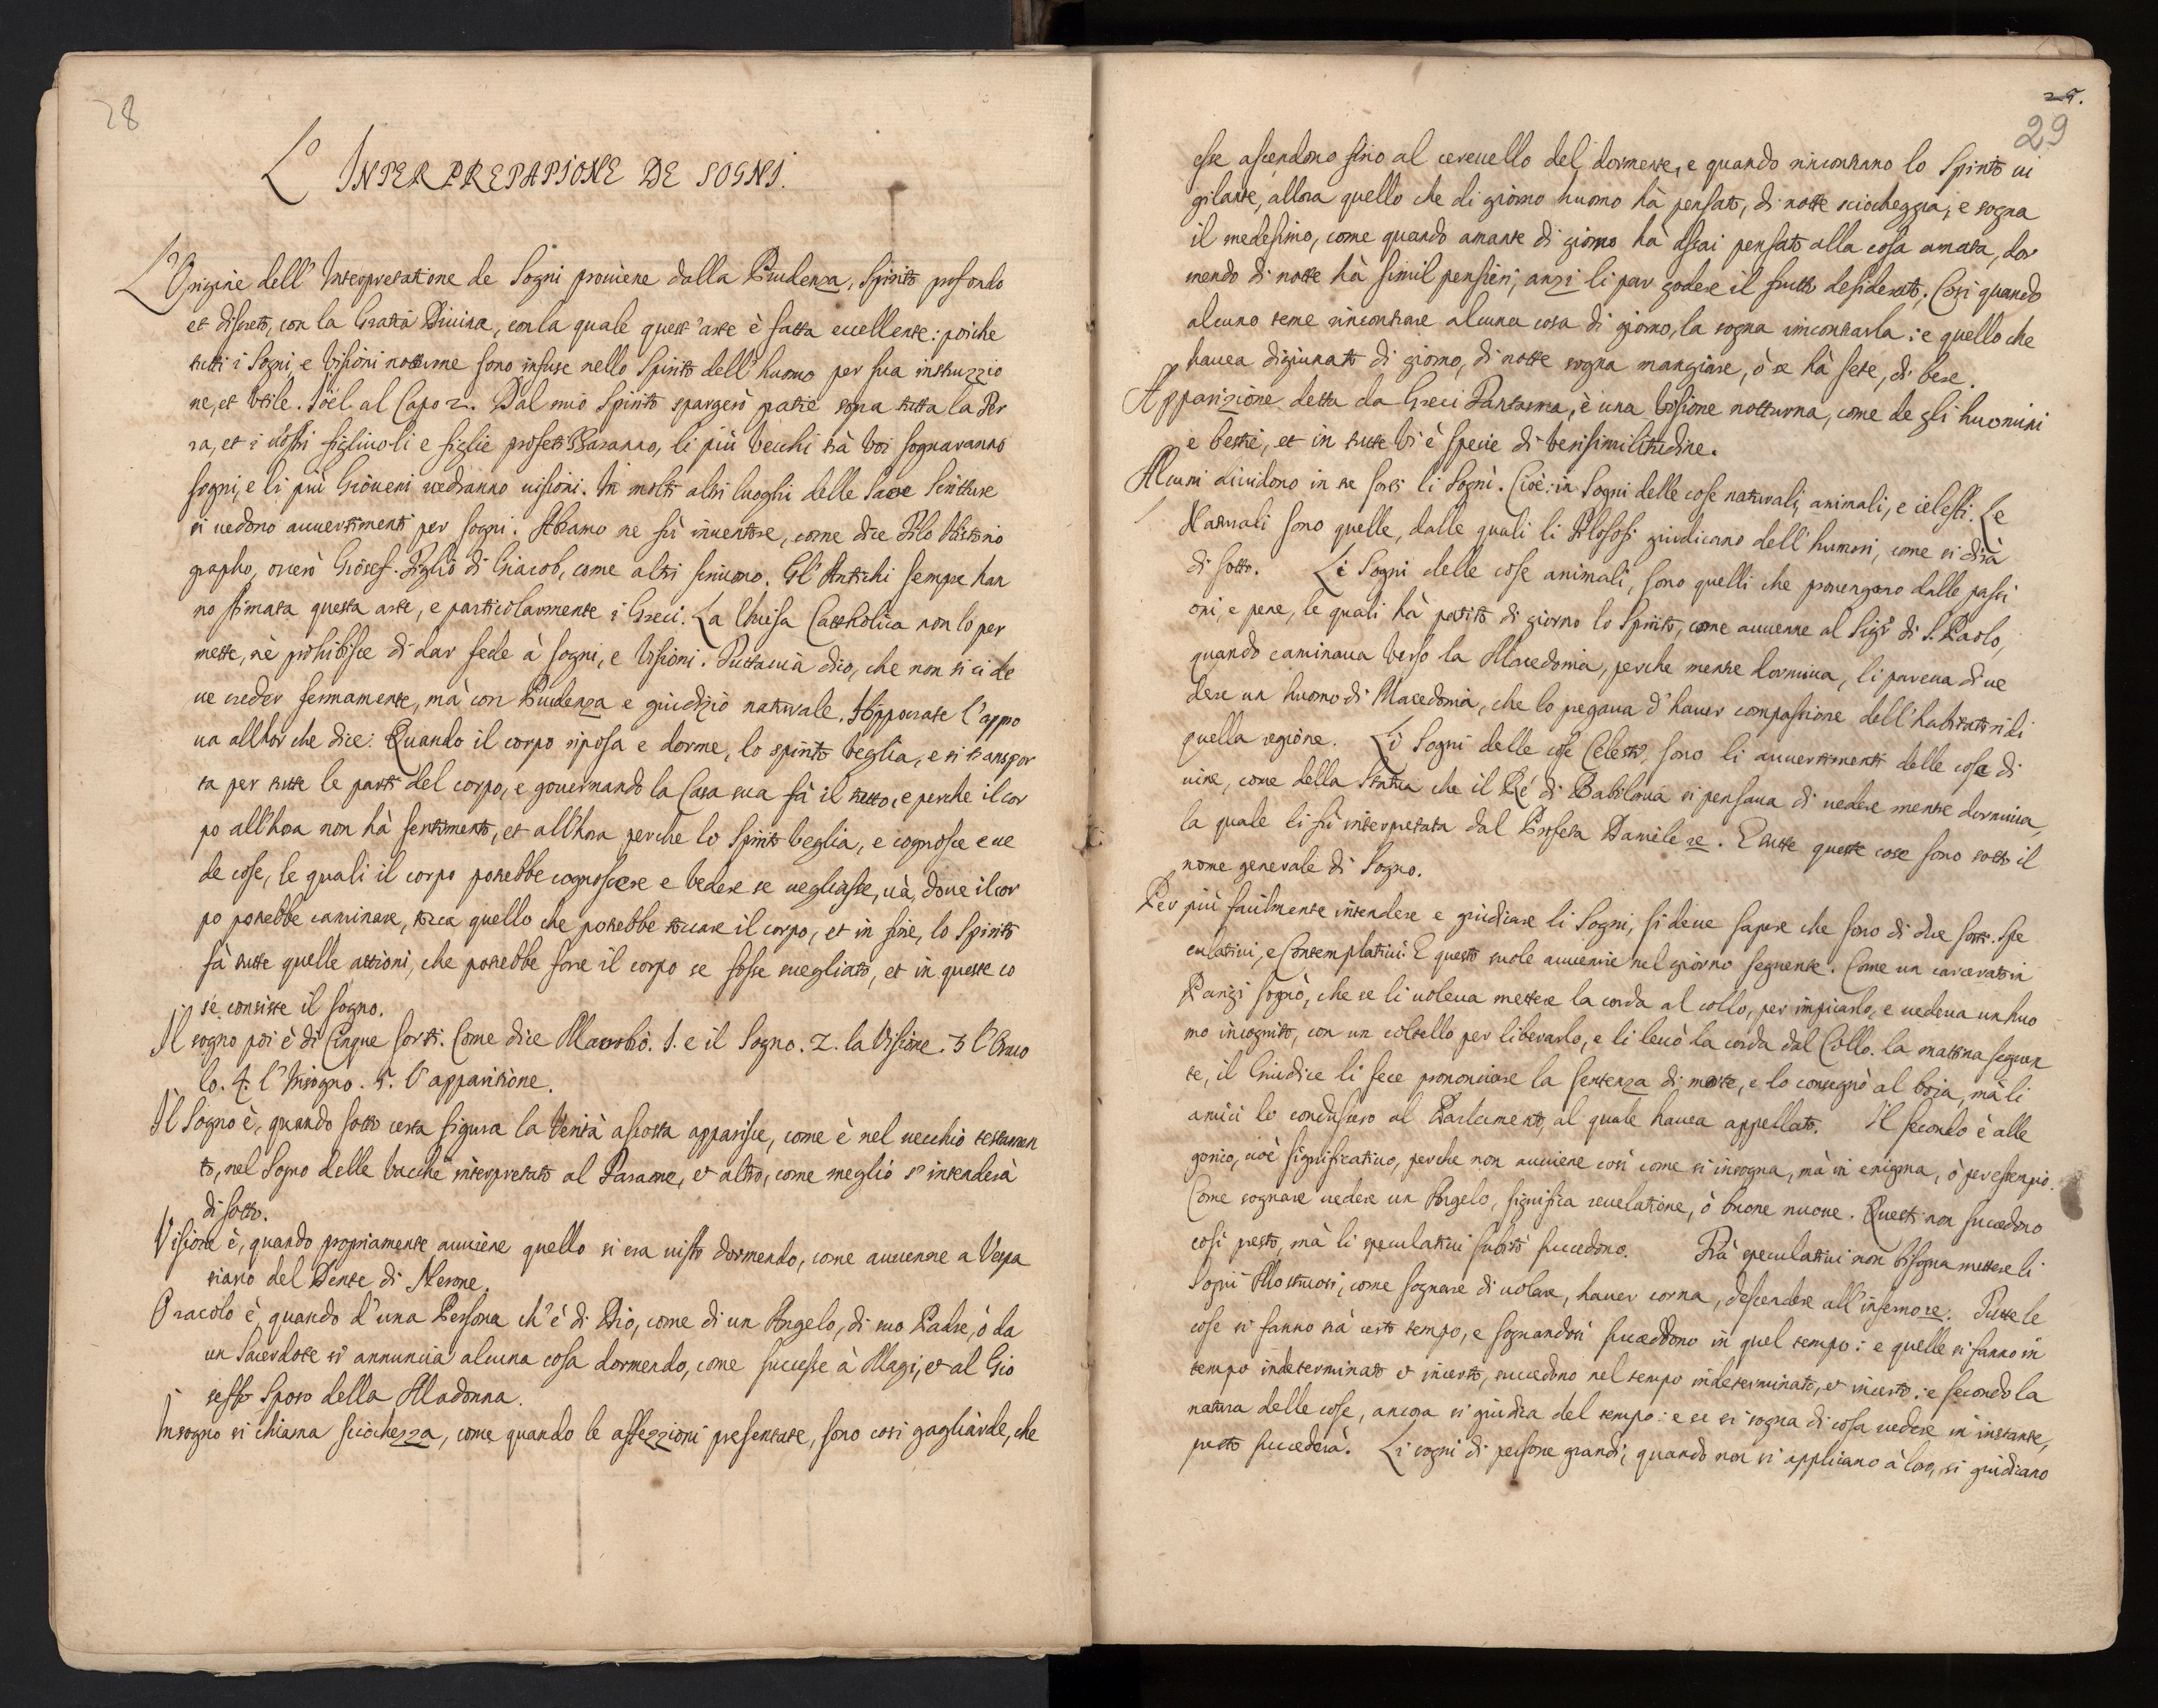 28
L' INTERPRETATIONE DE SOGNI.
L'Origine dell' Interpretatione de Sogni prouiene dalla Prudenza, Spirito profondo
et discreto, con la Gratia Diuina, con la quale quest'arte è fatta eccellente: poiche
tutti i Sogni, e Visioni notturne sono infuse nello Spirito dell'huomo per sua instruzzio
ne, et vtile. Ioël al Capo 2. Dal mio Spirito spargerò gratie sopra tutta la Ter
ra, et i vostri figliuoli e figlie profetizzaranno, li più Vecchi trà Voi sognaranno
sogni, e li più Gioueni uedranno uisioni. In molti altri luoghi delle Sacre Scritture
si uedono auuertimenti per sogni. Abramo ne fù inuentore, come dice Filo Histrio
grapho, ouerò Giosef. Figlio di Giacob, come altri scriuono. Gl'Antichi sempre han
no stimata questa arte, e particolarmente i Greci. La Chiesa Catholica non lo per
mette, nè prohibisce di dar fede à sogni, e Visioni. Tuttauia dico, che non si ci de
ue creder fermamente, mà con Prudenza e giudizio naturale. Hippocrate l'appro
ua allhor che dice: Quando il corpo riposa e dorme, lo spirito veglia, e si transpor
ta per tutte le parti del corpo, e gouernando la Casa sua fà il tutto, e perche il cor
po all'hora non hà sentimento, et all'hora perche lo Spirito veglia, e cognosce e ue
de cose, le quali il corpo potrebbe cognoscere e vedere se uegliasse, uà, doue il cor
po potrebbe caminare, tocca quello che potrebbe toccare il corpo, et in fine, lo Spirito
fà tutte quelle attioni, che potrebbe fare il corpo se fosse suegliato, et in queste co
se consiste il sogno.
Il sogno poi è di Cinque sorti. Come dice Macrobio. 1. e il Sogno. 2. la Visione. 3 l'Oraco
lo. 4. l'Insogno. 5. l'apparitione.
Il Sogno è, quando sotto certa figura la Verità ascosta apparisce, come è nel uecchio testamen
to, nel Sogno delle vacche interpretato al Faraone, et altro, come meglio s'intenderà
di sotto.
Visione è, quando propriamente auuiene quello si era uisto dormendo, come auuenne a Vespa
siano del Dente di Nerone.
Oracolo è, quando d'una Persona ch'è di Dio, come di un Angelo, di suo Padre, ò da
un Sacerdote si annuncia alcuna cosa dormendo, come successe à Magi, et al Gio
seffo Sposo della Madonna.
Insogno si chiama sciochezza, come quando le affezzioni presentate, sono cosi gagliarde, che
29
esse ascendono sino al ceruello del dormente, e quando rincontrano lo Spirito ui
gilante, allora quello che di giorno huomo hà pensato, di notte sciocheggia, e sogna
il medesimo, come quando amante di giorno hà assai pensato alla cosa amata, dor
mendo di notte hà simil pensieri, anzi li par godere il frutto desiderato. Cosi quando
alcuno teme rincontrare alcuna cosa di giorno, la sogna rincontrarla: e quello che
hauea digiunato di giorno, di notte sogna mangiare, ò se hà sete, di bere.
Apparizione detta da Greci Fantasma, è una Visione notturna, come de gli huomini
e bestie, et in tutte vi è specie di verisimilitudine.
Alcuni diuidono in tre sorti li Sogni. Cioè: in Sogni delle cose naturali, animali, e celesti. Le
Naturali sono quelle, dalle quali li Filosofi giudicano dell'humori, come si dirà
di sotto. Li Sogni delle cose animali, sono quelli che prouengono dalle passi
oni, e pene, le quali hà patito di giorno lo Spirito, come auuenne al Sigr di S. Paolo,
quando caminaua verso la Macedonia, perche mentre dormiua, li pareua di ue
dere un huomo di Macedonia, che lo pregaua d'hauer compassione dell'habitatori di
quella regione. Li Sogni delle cose Celesti, sono li auuertimenti delle cose di
uine, come della Statua che il Ré di Babilonia si pensaua di uedere mentre dormiua,
la quale li fù interpretata dal Profeta Daniele re. E tutte queste cose sono sotto il
nome generale di Sogno.
Per più facilmente intendere e giudicare li Sogni, si deue sapere che sono di due sorti. Spe
culatiui, e Contemplatiui. E questo suole auuenire nel giorno seguente. Come un carcerato in
Parigi sognò, che se li uoleua mettere la corda al collo, per impicarlo, e uedeua un huo
mo incognito, con un coltello per liberarlo, e li leuò la corda dal Collo. la mattina seguen
te, il Giudice li fece prononciare la sentenza di morte, e lo consegnò al boia, mà li
amici lo condussero al Parlamento, al quale hauea appellato. Il secondo è alle
gorico, cioè significatiuo, perche non auuiene cosi come si insogna, mà in enigma, ò per essempio.
Come sognare uedere un Angelo, significa reuelatione, ò buone nuoue. Questi non succedono
cosi presto, mà li speculatiui subito succedono. Frà speculatiui non bisogna mettere li
Sogni Mostruosi, come sognare di uolare, hauer corna, descendere all'inferno re. Tutte le
cose si fanno trà certo tempo, e sognandosi succeddono in quel tempo: e quelle si fanno in
tempo indeterminato et incerto, succedono nel tempo indeterminato, et incerto: e secondo la
natura delle cose, ancora si giudica del tempo: e se si sogna di cosa uedere in instante,
presto succederà. Li sogni di persone grandi, quando non si applicano à loro, si giudicano